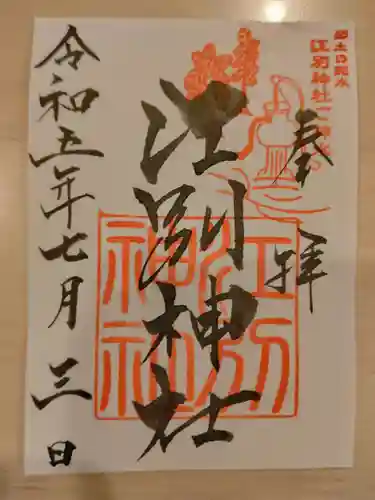 郷土の親水
江別神社
奉拝
江別神社
江別神社
令和五年七月三日